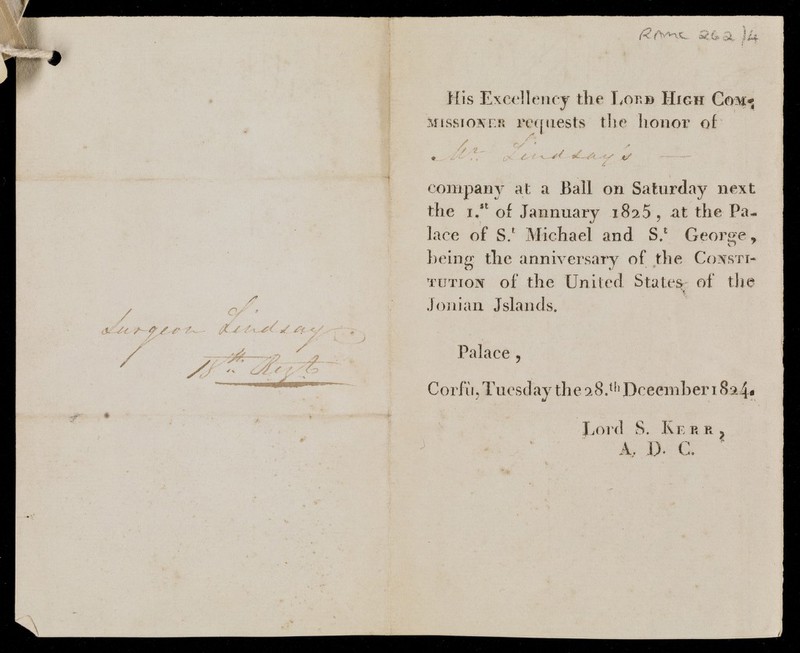 RAMC 262/4
His Excellency the LORD HIGH COM-
MISSIONER requests the honor of
Mr. Lindsay's —
company at a Ball on Saturday next
the 1.st of Jannuary 1825, at the Pa-
lace of S.t Michael and S.t George,
being the anniversary of the CONSTI-
TUTION of the United States of the
Jonian Jslands.
Palace,
Corfù, Tuesday the 28.th Dceember 1824.
Lord S. KERR,
A. D. C.
Surgeon Lindsay
18th Regt